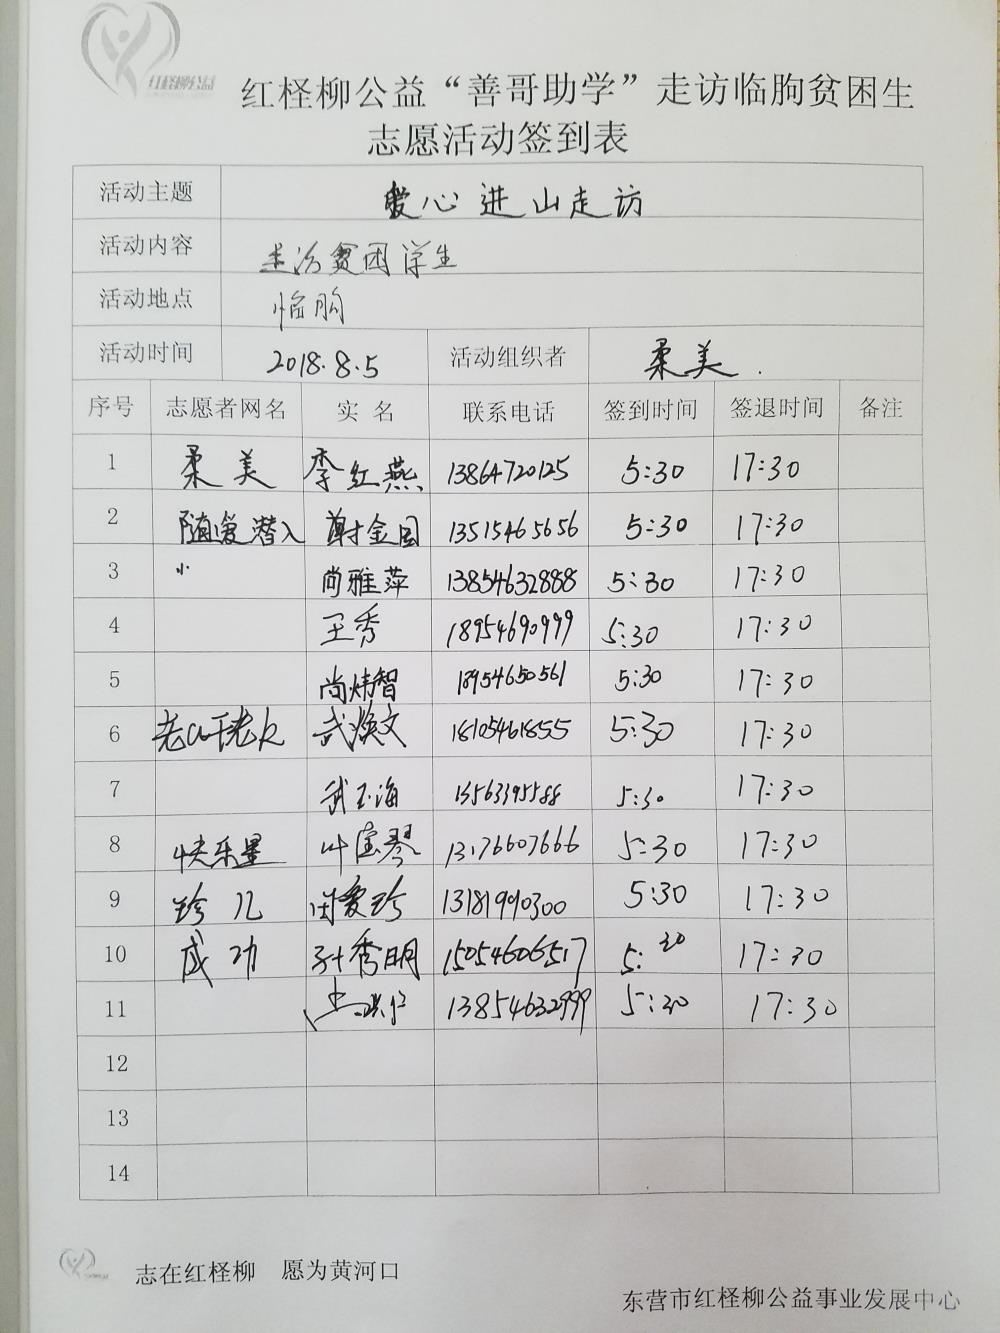 红柽柳公益
红柽柳公益“善哥助学”走访临朐贫困生
志愿活动签到表
活动主题 爱心进山走访
活动内容 走访贫困学生
活动地点 临朐
活动时间 2018.8.5 活动组织者 柔美.
序号 志愿者网名 实 名 联系电话 签到时间 签退时间 备注
1 柔美 李红燕 13864720125 5:30 17:30
2 随爱潜入 谢金国 13515465656 5:30 17:30
3 小 尚雅萍 13854632888 5:30 17:30
4 王秀 18954690999 5:30 17:30
5 尚炜智 18954650561 5:30 17:30
6 武焕文 18105461855 5:30 17:30
7 武玉海 5:30 17:30
8 快乐星 叶宝琴 13176607666 5:30 17:30
9 珍儿 闵爱珍 13181990300 5:30 17:30
10 成功 孙秀明 15054606517 5:30 17:30
11 13854632999 5:30 17:30
12
13
14
志在红柽柳 愿为黄河口
东营市红柽柳公益事业发展中心